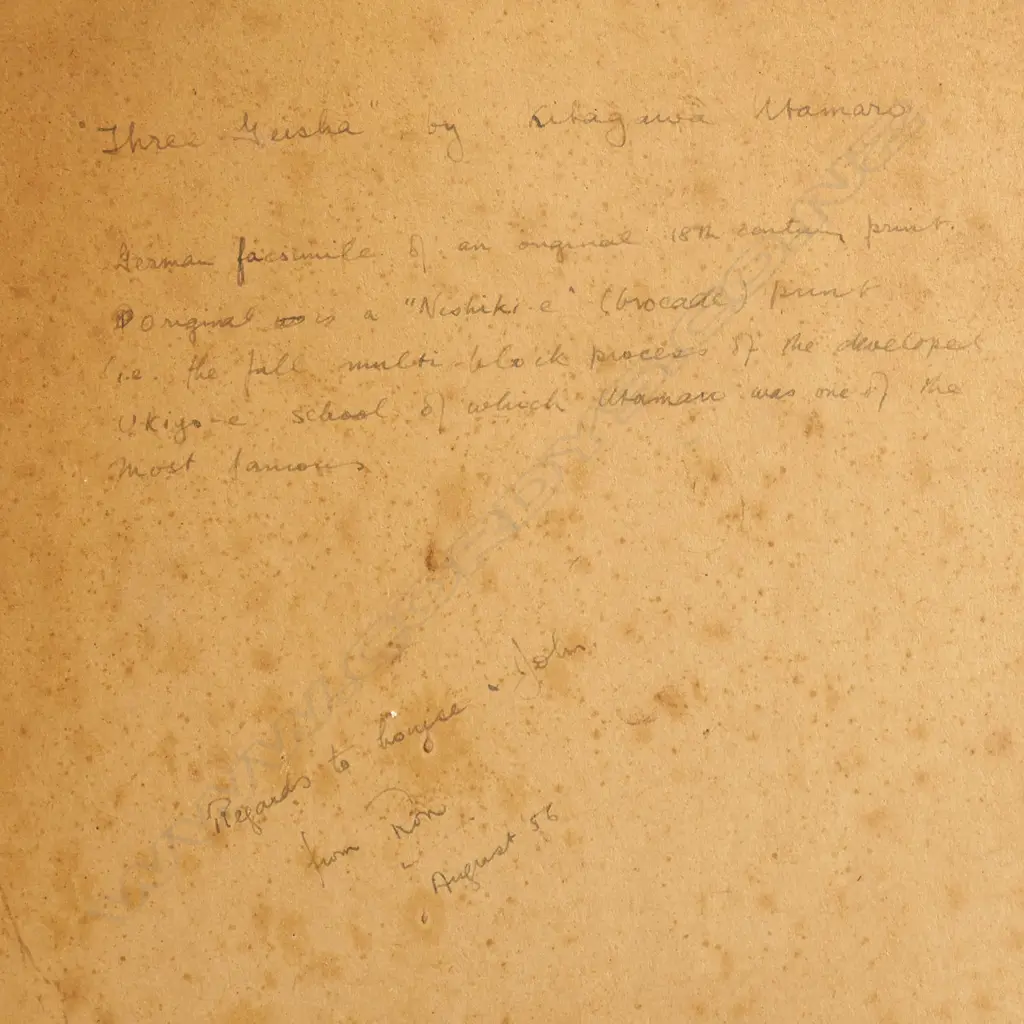 "Three Geisha" by Kitagawa Utamaro
German facsimile of an original 18th century print.
Original is a "Nishiki-e" (brocade) print
i.e. the full multi-block process of the developed
Ukiyo-e school of which Utamaro was one of the
most famous
Regards to Louise & John
from Ron
August 56